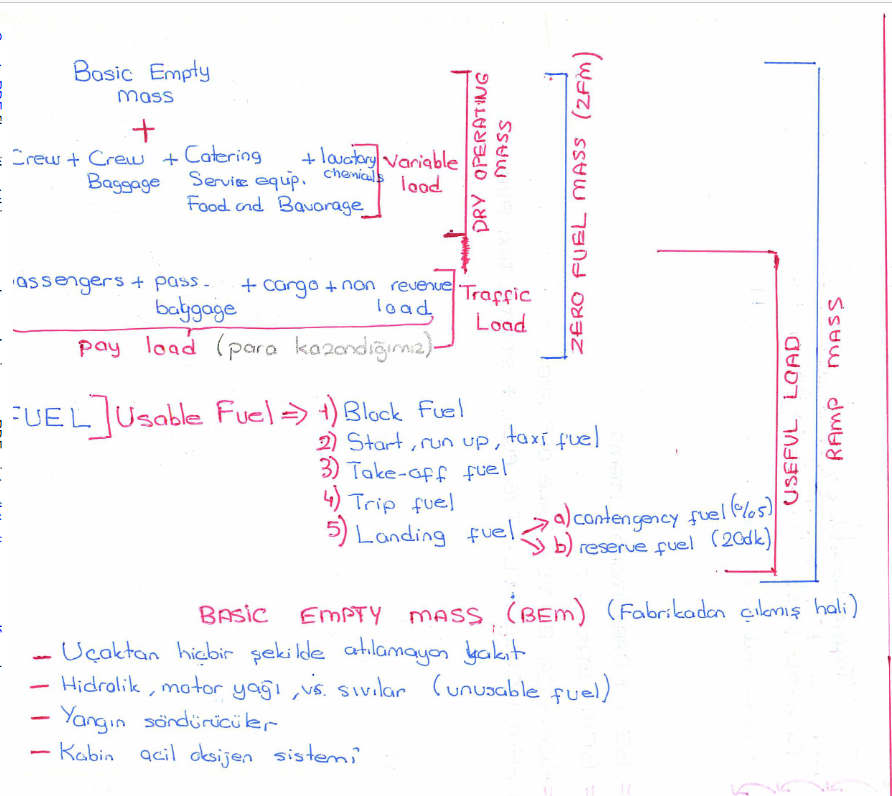 Basic Empty
mass
+
Crew + Crew + Catering + lavatory
Baggage Service equip. chemicals
Food and Bavarage
Variable
load
DRY OPERATING
MASS
ZERO FUEL MASS (ZFM)
assengers + pass. + cargo + non revenue
baggage load
Traffic
Load
pay load (para kazandığımız)
FUEL] Usable Fuel => 1) Block Fuel
2) Start, run up, taxi fuel
3) Take-off fuel
4) Trip fuel
5) Landing fuel
a) contengency fuel (%5)
b) reserve fuel (20dk)
USEFUL LOAD
RAMP MASS
BASIC EMPTY MASS (BEM) (Fabrikadan çıkmış hali)
- Uçaktan hiçbir şekilde atılamayan yakıt
- Hidrolik, motor yağı, vs. sıvılar (unusable fuel)
- Yangın söndürücüler
- Kabin acil oksijen sistemi